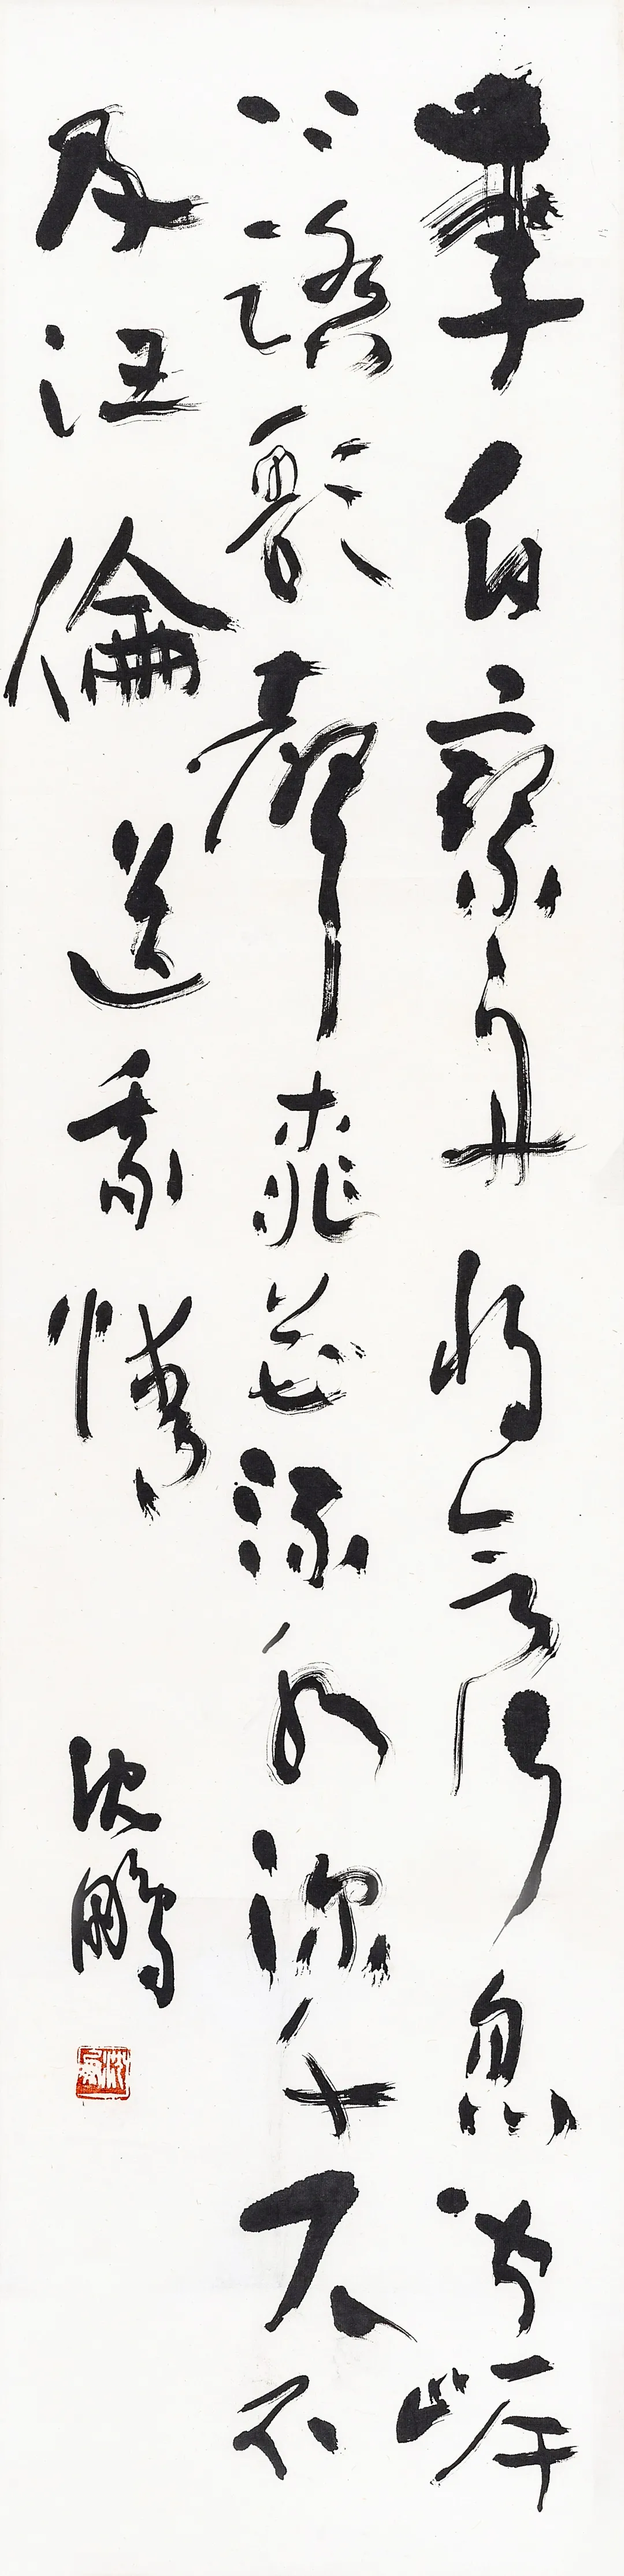 李白乘舟将欲行忽聞岸
上踏歌聲桃花潭水深千尺不
及汪倫送我情
沈鵬